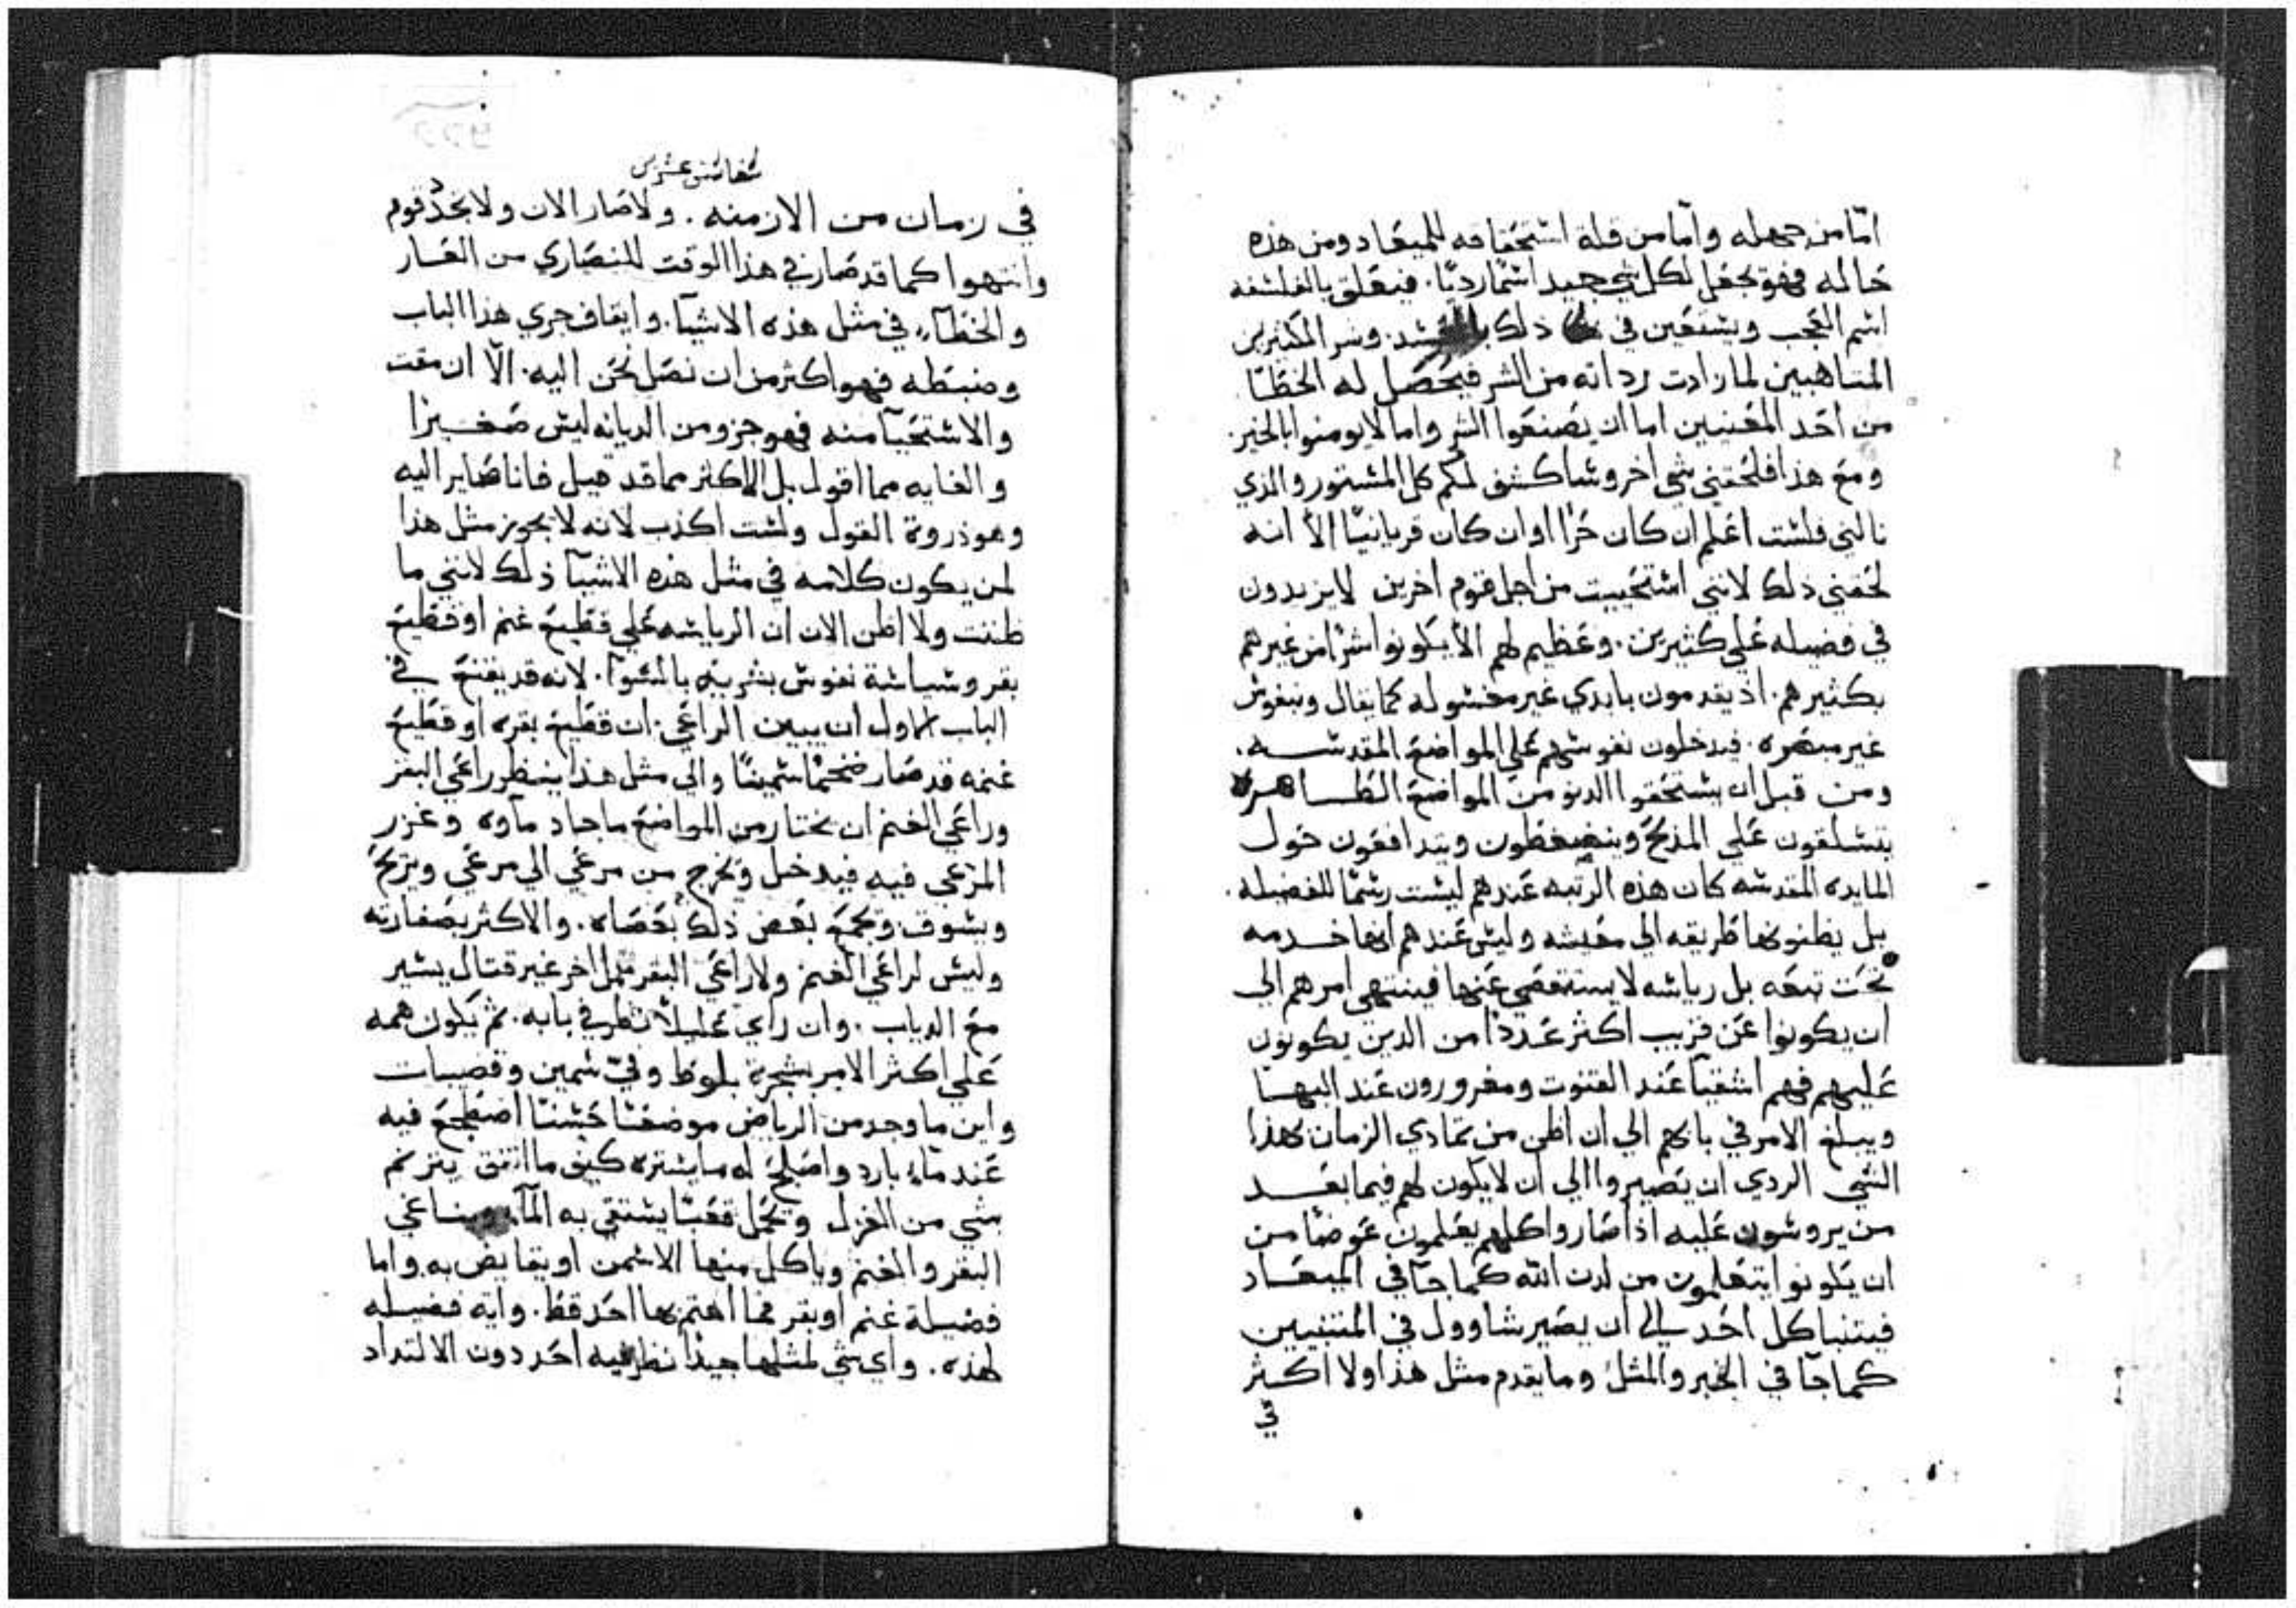 امّا من جهله وامّا من قلة اشتحقاقه للميعاد ومن هذه
حاله فهو يجعل لكل شي جيد اشمًا رديًا. فيعلق بالفلشفه
اشم العجب ويشتعين في ذلك وشر الكثيرين
المتناهيين لما زادت رداته من الشر فيحصل له الخطا
من احد المعنيين اما ان يصنعوا الشر واما لا يومنوا بالخير.
ومع هذا فلحقني شي اخر وشاكشف لكم كل المشتور والذي
نالني فلشت اعلم ان كان حرًا او ان كان قربانيًا الا انه
لحقني ذلك لانني اشتحييت من اجل قوم اخرين لا يزيدون
في فضيله علي كثيرين. وعظيم لهم الا يكونوا اشرًا من غيرهم
بكثيرهم. اذ يقدمون بايدي غير مغشوله كما يقال وبنفوش
غير مبصره. فيدخلون نفوشهم علي المواضع المقدشه.
ومن قبل ان يشتحقوا الدنو من المواضع الطاهره
يتشلقون علي المذبح وينضغطون ويتدافعون حول
المايده المقدشه كان هذه الرتبه عندهم ليشت رشمًا للفضيله.
بل يظنونها طريقه الي معيشه وليش عندهم انها خدمه
تحت تبعه بل رياشه لا يستقصي عنها فينتهي امرهم الي
ان يكونوا عن قريب اكثر عددًا من الدين يكونون
عليهم فهم اشقيا عند القنوت ومغرورون عند البها
ويبلغ الامر في بابهم الي ان اظن من تمادي الزمان بهذا
الشي الردي ان يصيروا الي ان لا يكون لهم فيما بعد
من يروشون عليه اذا صاروا كلهم يعلمون عوضًا من
ان يكونوا يتعلمون من لدن الله كما جا في الميعاد
فيتنبا كل احد الي ان يصير شاوول في المتنبيين
كما جا في الخبر والمثل وما يقدم مثل هذا ولا اكثر
في
في زمان من الازمنه. ولا صار الان ولا نجد قوم
وانتهوا كما قد صار في هذا الوقت للنصاري من العار
والخطاء في مثل هذه الاشيا. وايقاف جري هذا الباب
وضبطه فهو اكثر من ان نصل نحن اليه. الّا ان مقت
والاشتحيا منه فهو جزو من الديانه ليش صغيرا
والغايه مما اقول بل الاكثر مما قد قيل فانا صاير اليه
وهو ذروة القول ولشت اكذب لانه لا يجوز مثل هذا
لمن يكون كلامه في مثل هذه الاشيا ذلك لانني ما
ظننت ولا اظن الان ان الرياشه علي قطيع غنم او قطيع
بقر وشياشة نفوش بشريه بالشوا. لانه قد يقنع في
الباب الاول ان يبين الراعي. ان قطيع بقره او قطيع
غنمه قد صار ضخمًا شمينًا والي مثل هذا ينظر راعي البقر
وراعي الغنم ان يختار من المواضع ما جاد ماوه وغزر
المرعي فيه فيدخل ويخرج من مرعي الي مرعي ويريح
ويشوق ويجمع بعض ذلك بعصاه. والاكثر بصفارته
وليش لراعي الغنم ولا راعي البقر عمل اخر غير قتال يشير
مع الدياب. وان راي عليلًا نظر في بابه. ثم يكون همه
علي اكثر الامر بشجرة بلوط وفيّ شمين وقصبات
واين ما وجد من الرياض موضعًا حشنًا اضطجع فيه
عند ماء بارد واصلح له ما يشتره كيف ما اتفق يترنم
بشي من الغزل ويحمل قعبًا يشتقي به الماء ويناغي
البقر والغنم وياكل منها الاشمن او يقايض به. واما
فضيلة غنم او بقر فما اهتم بها احد قط. وايه فضيله
لهذه. واي شي لمثلها جيدًا نظر فيه احد دون الالتداد